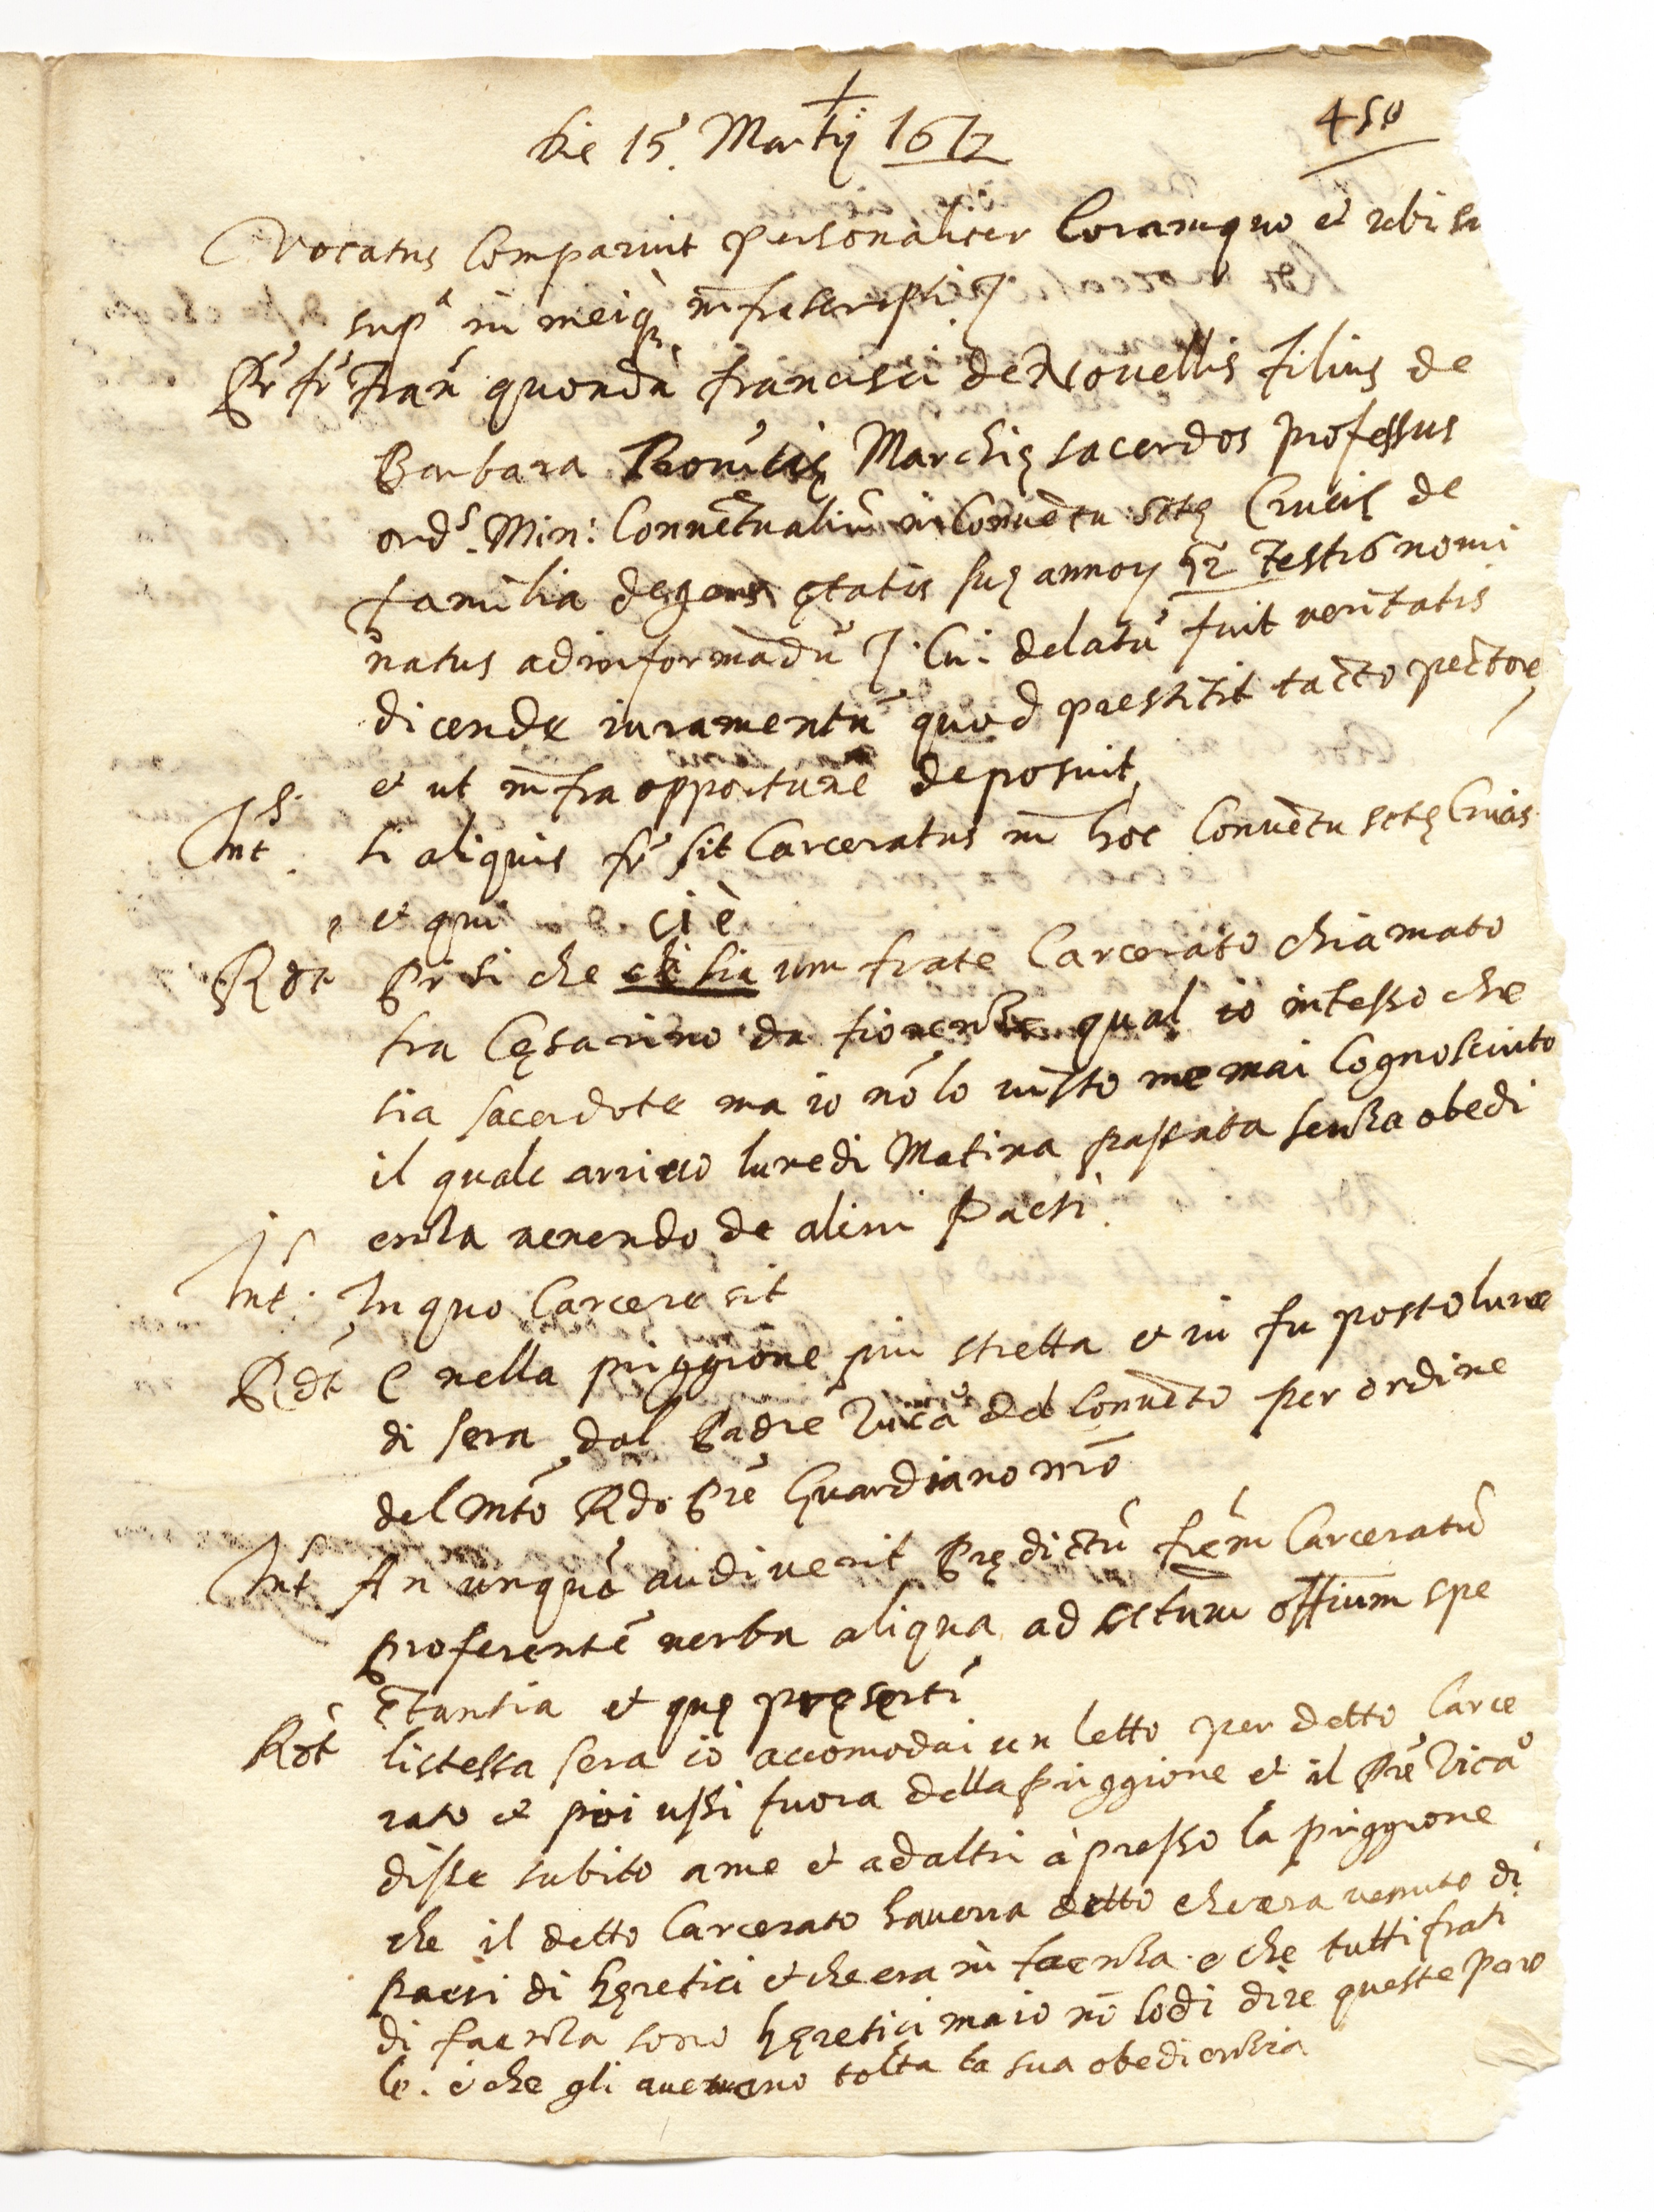 +
Die 15. Martij 1612
450
Vocatus Comparuit personaliter Coramquo et ubi su
supª in meiq; infrascripti /
Pr̃ fr̃ Fran̄ quondā francisci de Novellis filius de
Barbara Marchię sacerdos professus
ordˢ. Min: Conuētualiū in Conuētu sctę Crucis de
familia degens ętatis suę annoꝝ 52 testis nomi
natus ad informādū /. Cui delatū fuit veritatis
dicende iuramentū quod prestitit tacto pectore
et ut infra opportune deposuit
Intˢ. si aliquis fr̃ sit Carceratus in hoc Conuētu sctę Crucis
et qui
ci è
Rdt Pr̃ si che ci sia um frate Carcerato chiamato
fra Cęsarino da fiorenza qual io intesso che
sia sacerdote ma io nō lo visto ne mai Cognosciuto
il quale arriuo lunedi Matina passata senza obedi
enza venendo de alieni Paesi.
Intˢ. In quo Carcere sit
Rdt E nella priggione piu stretta et iui fu posto lune
di sera dal Padre Vicaº del Conuēto per ordine
del Mtō Rdo Prē Guardiano nrō
Intˢ An unquā audiverit prędictū frēm Carceratū
proferentē verba aliqua ad sctum offium spe
ctantia et quę pręsertī
Rdt listessa sera io accomodai un letto per detto Carce
rato et poi ussi fuora della priggione et il Prē Vicaº
disse subito a me et ad altri à presso la priggione
che il detto Carcerato haueua detto che era venuto di
paesi di hęretici et che era in faenza e che tutti frati
di faenza sono hęretici ma io nō lodi dire queste paro
le. e che gli aueuano tolta la sua obedienzia